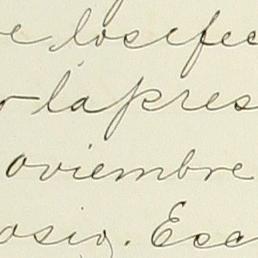 e losefec
r la pres
oviembre
osig. Esc